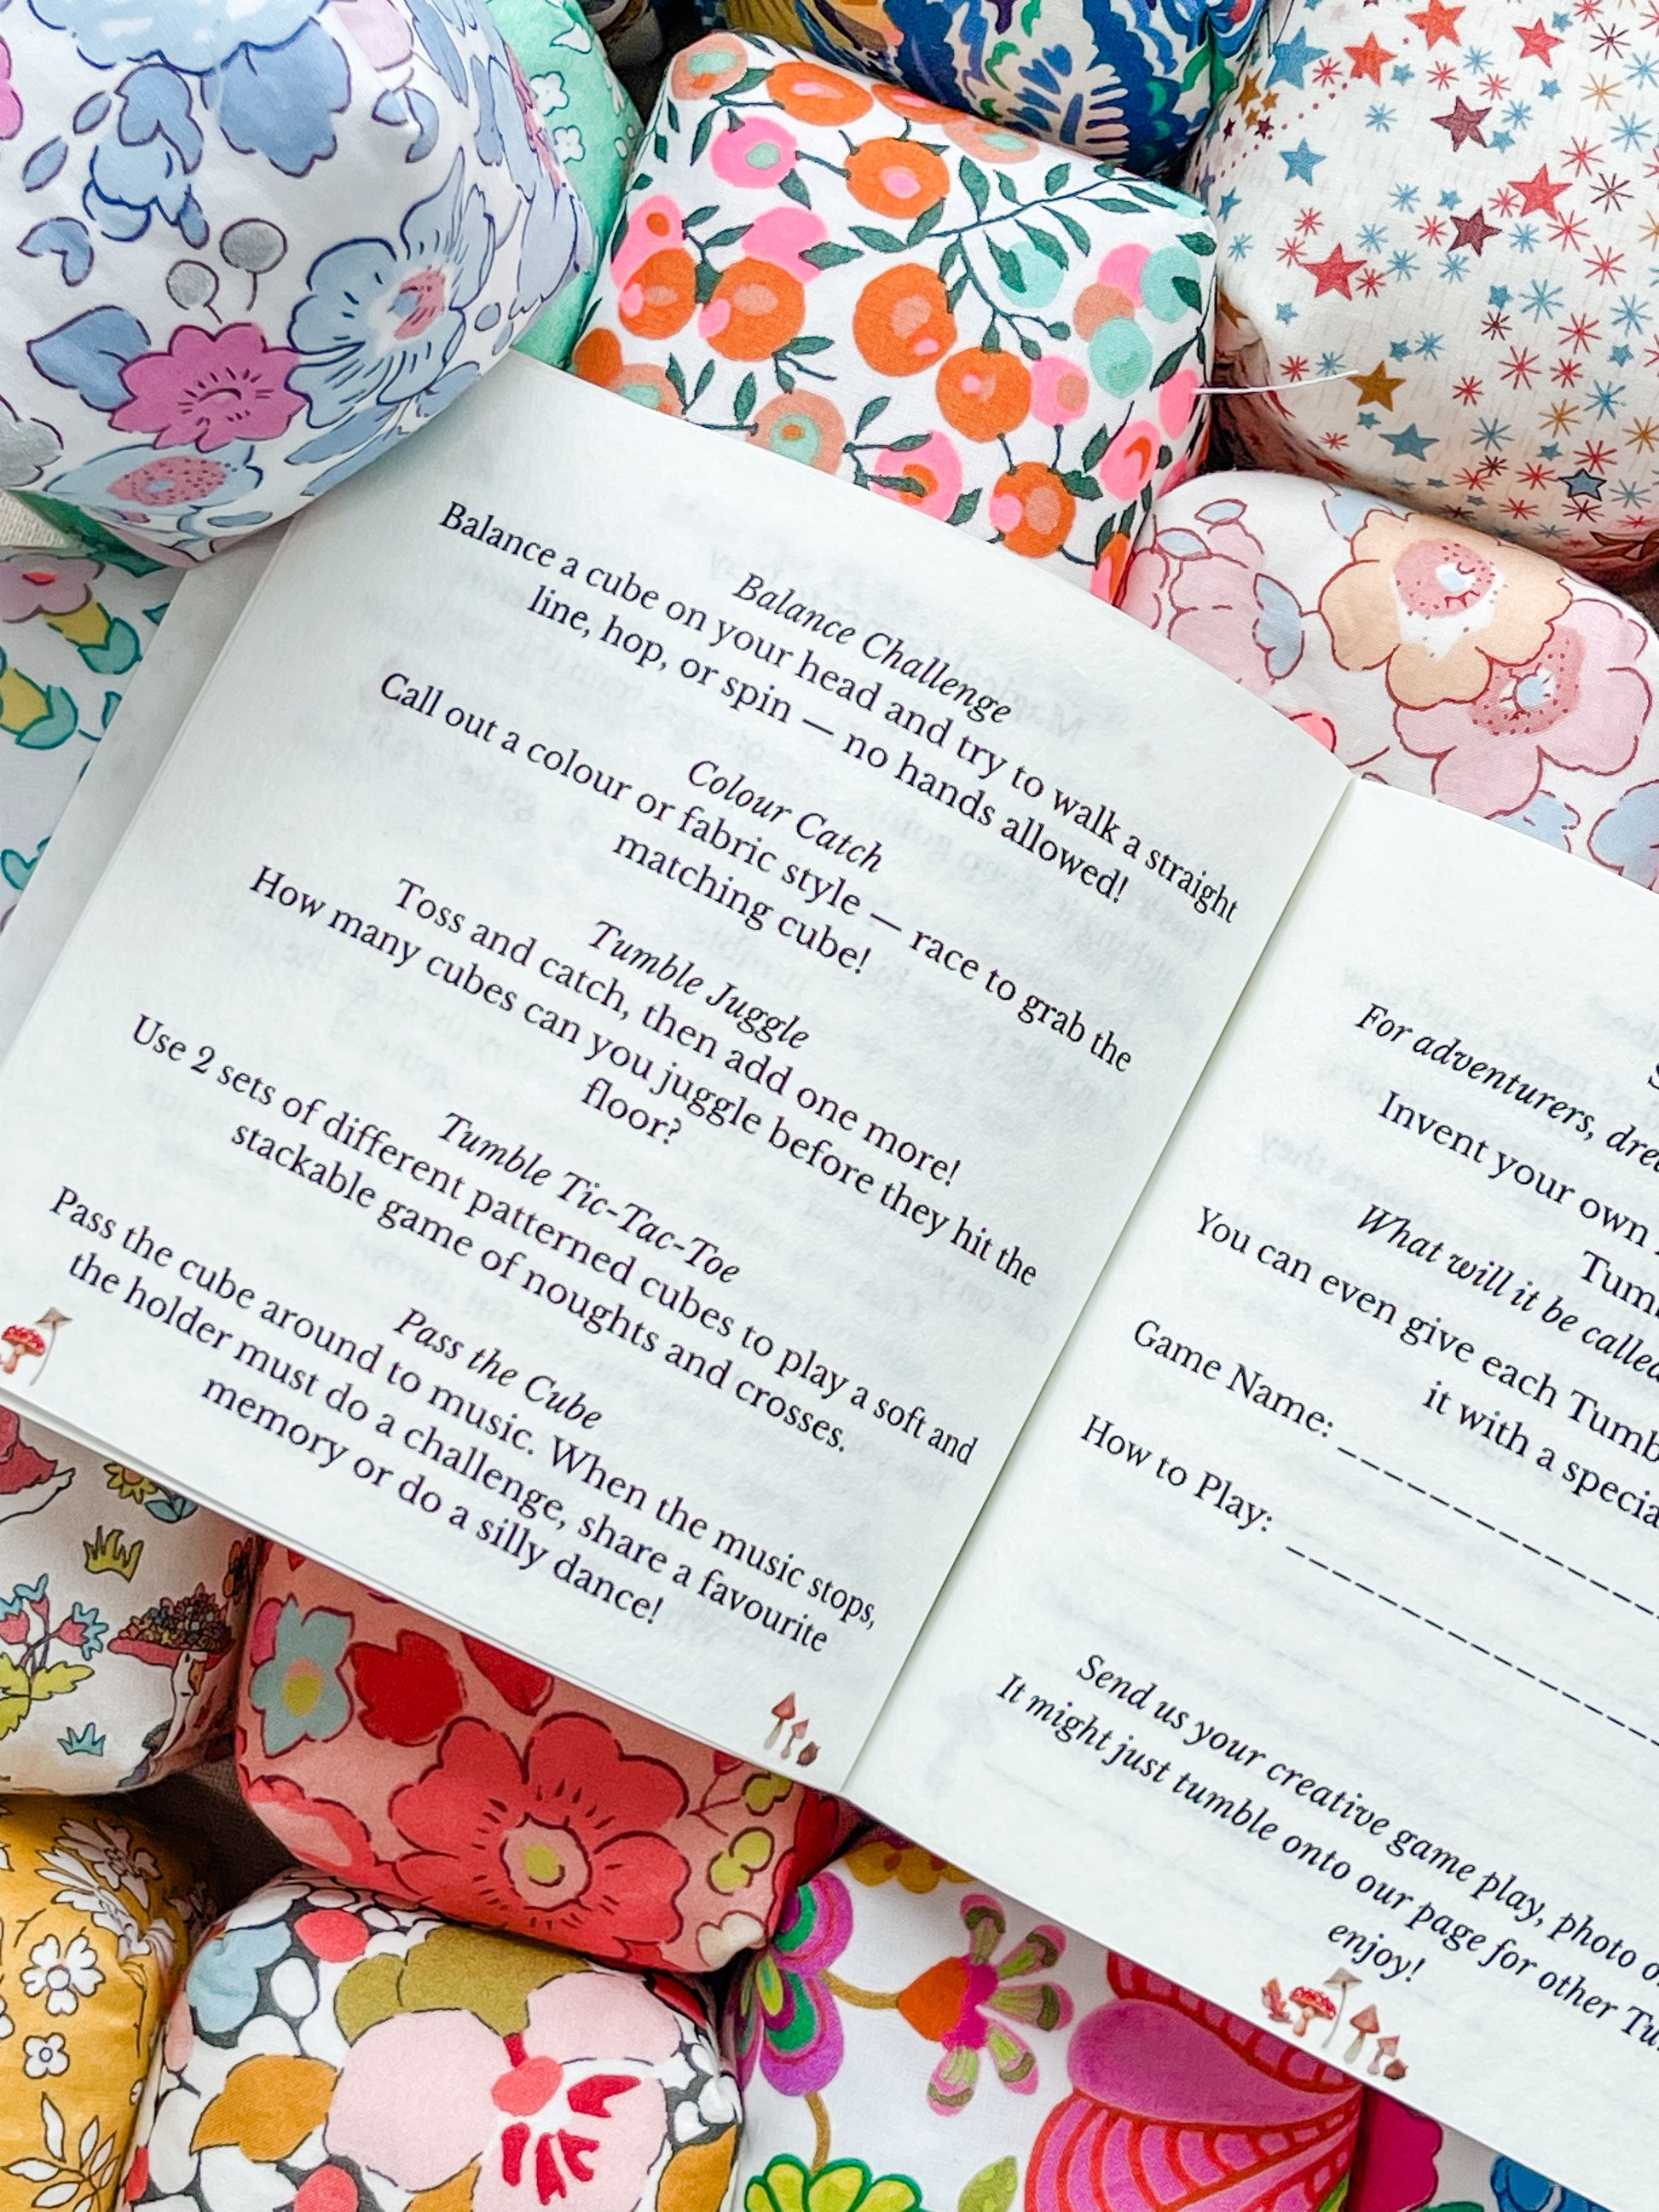 Balance Challenge
Balance a cube on your head and try to walk a straight
line, hop, or spin — no hands allowed!
Colour Catch
Call out a colour or fabric style — race to grab the
matching cube!
Tumble Juggle
Toss and catch, then add one more!
How many cubes can you juggle before they hit the
floor?
Tumble Tic-Tac-Toe
Use 2 sets of different patterned cubes to play a soft and
stackable game of noughts and crosses.
Pass the Cube
Pass the cube around to music. When the music stops,
the holder must do a challenge, share a favourite
memory or do a silly dance!
For adventurers,
Invent your own
What will it be called
You can even give each
it with a
Game Name:
How to Play:
Send us your creative game play, photo
It might just tumble onto our page for other
enjoy!